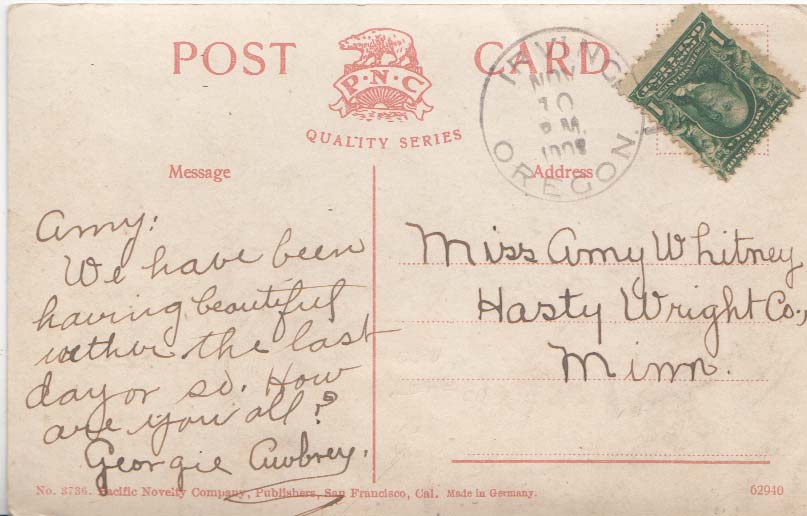 POST CARD
P·N·C
QUALITY SERIES
IRVING
NOV
10
P M.
OREGON.
1
1
Message
Address
Amy:
We have been
having beautiful
wether the last
day or so. How
are you all?
Georgie Awbrey.
Miss Amy Whitney
Hasty Wright Co.,
Minn.
No. 3736. Pacific Novelty Company, Publishers, San Francisco, Cal. Made in Germany.
62940